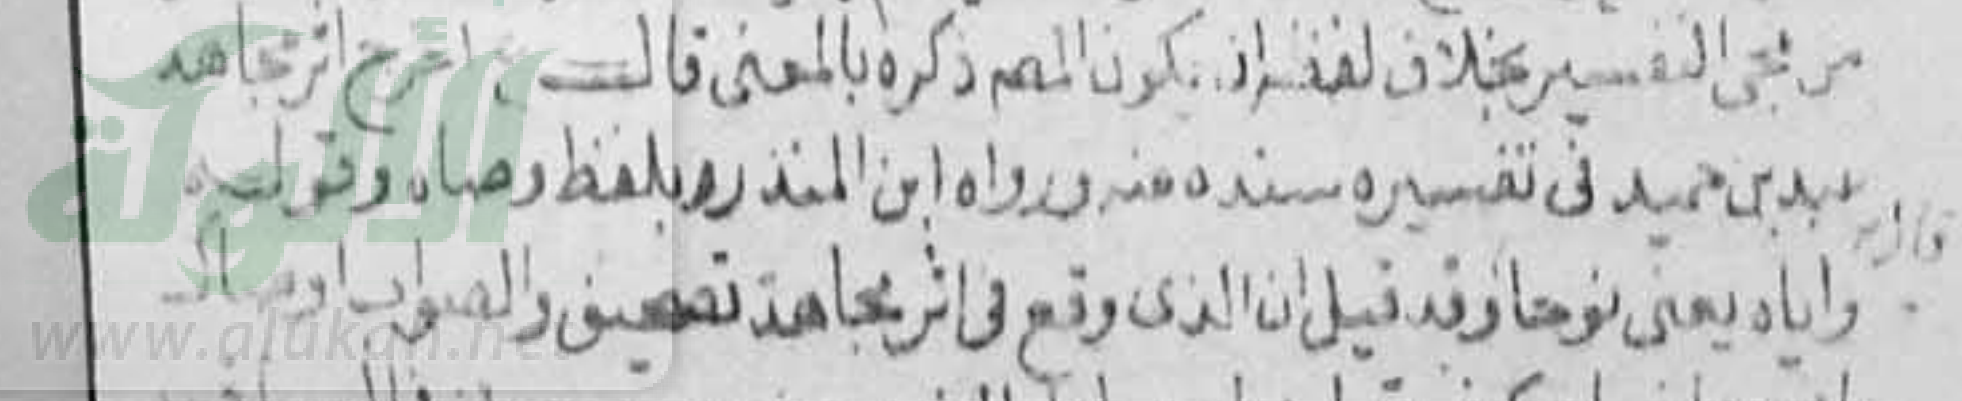 من مجى التفسير بخلاف لفظه اذ يكون المصم ذكره بالمعنى قالـــت اخرج اثر مجاهد
عبد بن حميد فى تفسيره بسنده عنه ورواه ابن المنذر وبلفظ وصاه وقولـه
قال
واياه يعنى نوحا وقد قيل ان الذى وقع فى اثر مجاهد تصحيف والصواب اوصاك
الألوكة
www.alukah.net